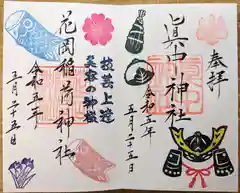 奉拝
神社
令和五年
五月二十五日
技芸上達
の神様
花岡稲荷神社
令和五年
五月二十五日